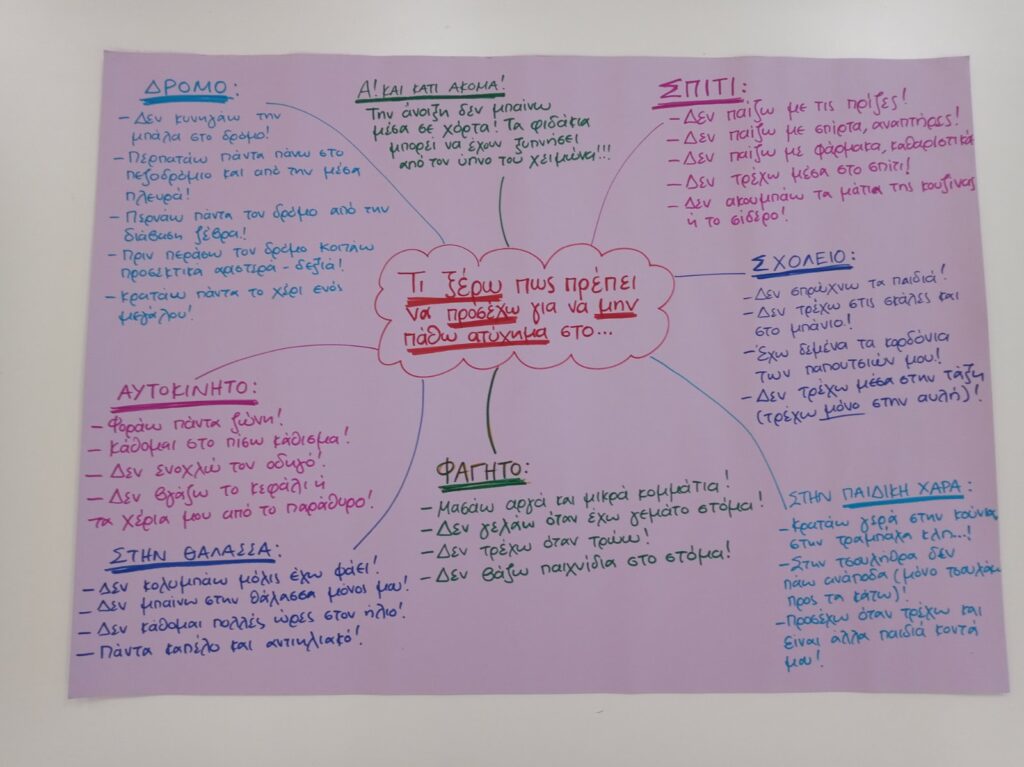 Τι ξέρω πως πρέπει
να προσέχω για να μην
πάθω ατύχημα στο...
ΔΡΟΜΟ:
- Δεν κυνηγάω την
μπάλα στο δρόμο!
- Περπατάω πάντα πάνω στο
πεζοδρόμιο και από την μέσα
πλευρά!
- Περνάω πάντα τον δρόμο από την
διάβαση ζέβρα!
- Πριν περάσω τον δρόμο κοιτάω
προσεκτικά αριστερά - δεξιά!
- Κρατάω πάντα το χέρι ενός
μεγάλου!
Α! ΚΑΙ ΚΑΤΙ ΑΚΟΜΑ!
Την άνοιξη δεν μπαίνω
μέσα σε χόρτα! Τα φιδάκια
μπορεί να έχουν ξυπνήσει
από τον ύπνο του χειμώνα!!!
ΣΠΙΤΙ:
- Δεν παίζω με τις πρίζες!
- Δεν παίζω με σπίρτα, αναπτήρες!
- Δεν παίζω με φάρμακα, καθαριστικά
- Δεν τρέχω μέσα στο σπίτι!
- Δεν ακουμπάω τα μάτια της κουζίνας
ή το σίδερο!
ΣΧΟΛΕΙΟ:
- Δεν σπρώχνω τα παιδιά!
- Δεν τρέχω στις σκάλες και
στο μπάνιο!
- Έχω δεμένα τα κορδόνια
των παπουτσιών μου!
- Δεν τρέχω μέσα στην τάξη
(τρέχω μόνο στην αυλή)!
ΑΥΤΟΚΙΝΗΤΟ:
- Φοράω πάντα ζώνη!
- Κάθομαι στο πίσω κάθισμα!
- Δεν ενοχλώ τον οδηγό!
- Δεν βγάζω το κεφάλι ή
τα χέρια μου από το παράθυρο!
ΦΑΓΗΤΟ:
- Μασάω αργά και μικρά κομμάτια!
- Δεν γελάω όταν έχω γεμάτο στόμα!
- Δεν τρέχω όταν τρώω!
- Δεν βάζω παιχνίδια στο στόμα!
ΣΤΗΝ ΘΑΛΑΣΣΑ:
- Δεν κολυμπάω μόλις έχω φάει!
- Δεν μπαίνω στην θάλασσα μόνος μου!
- Δεν κάθομαι πολλές ώρες στον ήλιο!
- Πάντα καπέλο και αντιηλιακό!
ΣΤΗΝ ΠΑΙΔΙΚΗ ΧΑΡΑ:
- Κρατάω γερά στην κούνια,
στην τραμπάλα κλπ...!
- Στην τσουλήθρα δεν
πάω ανάποδα (μόνο τσουλάω
προς τα κάτω)!
- Προσέχω όταν τρέχω και
είναι άλλα παιδιά κοντά
μου!